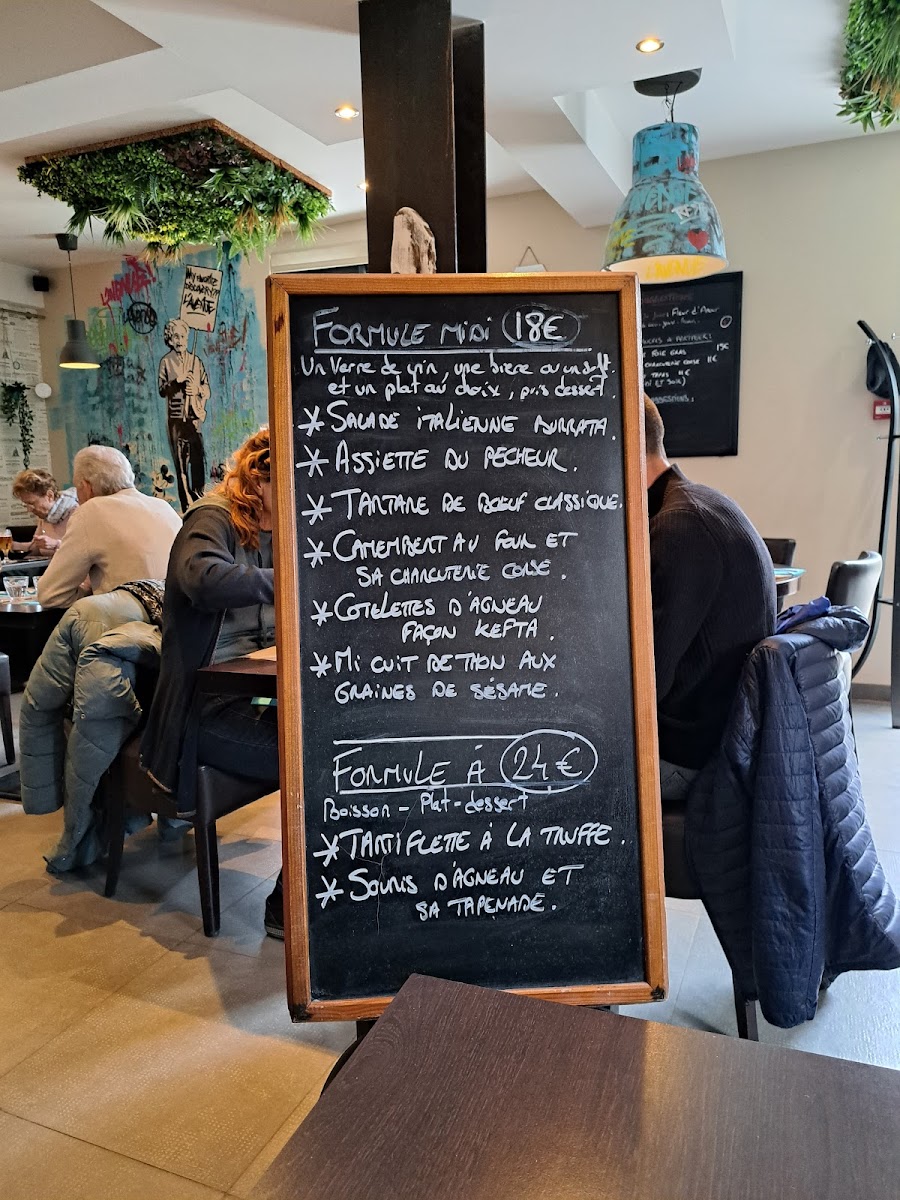 FORMULE MIDI 18€
Un Verre de vin, une bière ou un soft.
et un plat au choix, puis dessert.
* SALADE ITALIENNE BURRATA.
* ASSIETTE DU PECHEUR.
* TARTARE DE BŒUF CLASSIQUE.
* CAMEMBERT AU FOUR ET
SA CHARCUTERIE CORSE.
* COTELETTES D'AGNEAU
FAÇON KEFTA.
* MI CUIT DE THON AUX
GRAINES DE SÉSAME.
FORMULE À 24€
Boisson - Plat - dessert
* TARTIFLETTE À LA TRUFFE.
* SOURIS D'AGNEAU ET
SA TAPENADE.
MY FAVORITE
L'AVENUE
FOIE GRAS 15€